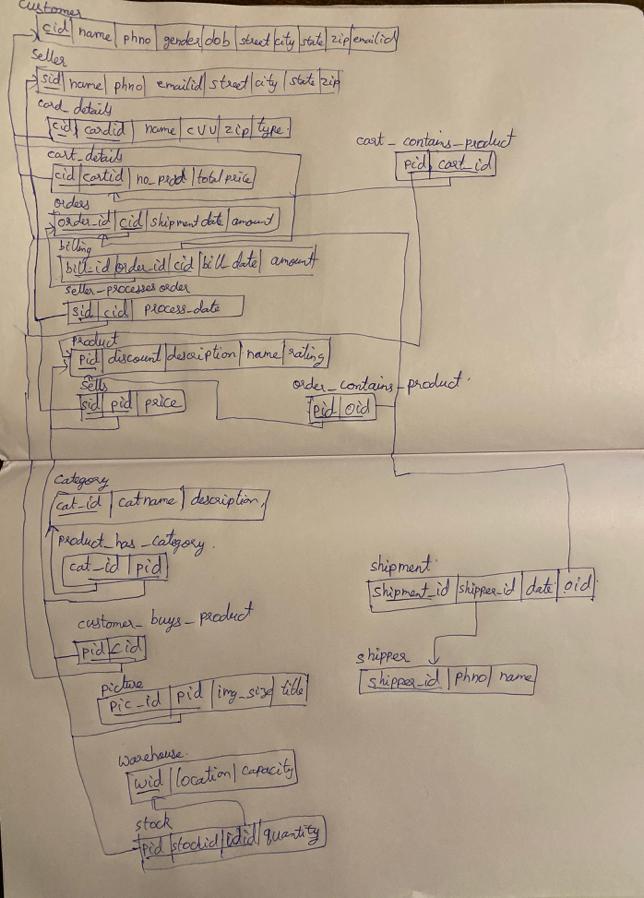 customer
cid | name | phno | gender | dob | street | city | state | zip | emailid
seller
sid | name | phno | emailid | street | city | state | zip
card_details
cid | cardid | name | cvv | zip | type
cart_contains_product
pid | cart_id
cart_details
cid | cartid | no_prod | total price
orders
order_id | cid | shipment date | amount
billing
bill_id | order_id | cid | bill_date | amount
seller_processes order
sid | cid | process_date
product
pid | discount | description | name | rating
sells
sid | pid | price
order_contains_product
pid | oid
category
cat_id | catname | description
product_has_category
cat_id | pid
shipment
shipment_id | shipper_id | date | oid
customer_buys_product
pid | cid
shipper
shipper_id | phno | name
picture
pic_id | pid | img_size | title
warehouse
wid | location | capacity
stock
pid | stockid | | quantity